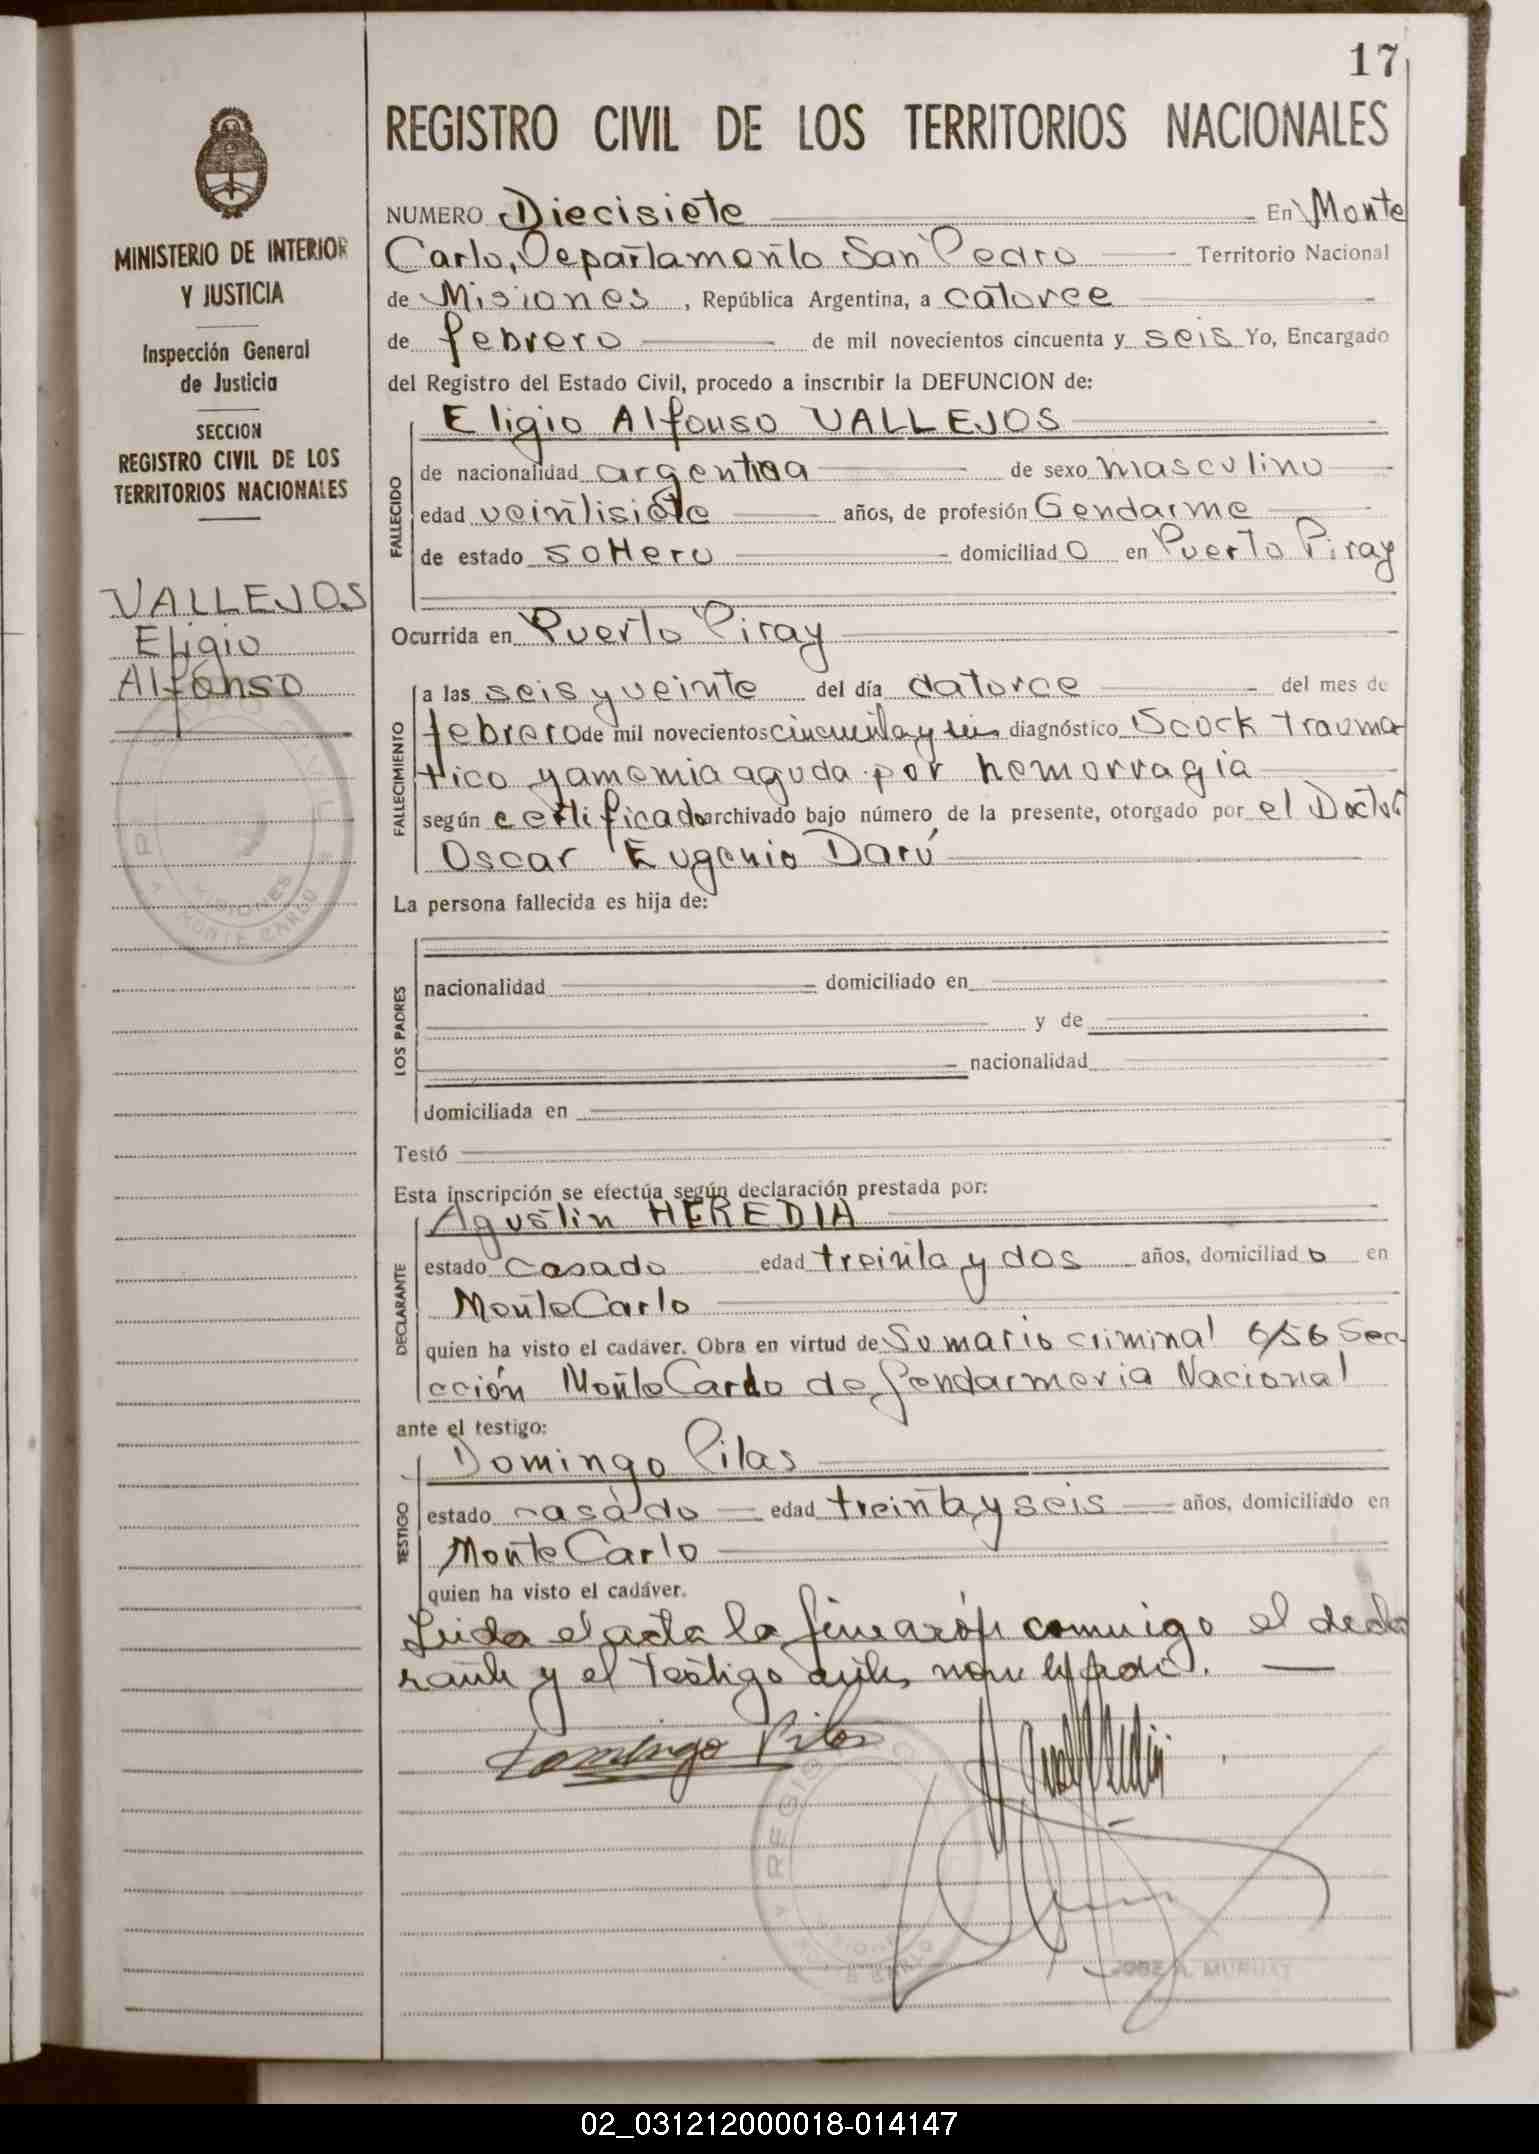 17
REGISTRO CIVIL DE LOS TERRITORIOS NACIONALES
MINISTERIO DE INTERIOR
Y JUSTICIA
Inspección General
de Justicia
SECCION
REGISTRO CIVIL DE LOS
TERRITORIOS NACIONALES
VALLEJOS
Eligio
Alfonso
NUMERO Diecisiete En Monte
Carlo, Departamento San Pedro Territorio Nacional
de Misiones, República Argentina, a catorce
de febrero de mil novecientos cincuenta y seis Yo, Encargado
del Registro del Estado Civil, procedo a inscribir la DEFUNCION de:
FALLECIDO
Eligio Alfonso VALLEJOS
de nacionalidad argentina de sexo masculino
edad veintisiete años, de profesión Gendarme
de estado soltero domiciliado en Puerto Piray
Ocurrida en Puerto Piray
FALLECIMIENTO
a las seis y veinte del día catorce del mes de
febrero de mil novecientos cincuenta y seis diagnóstico Scock trauma
tico y anemia aguda por hemorragia
según certificado archivado bajo número de la presente, otorgado por el Doctor
Oscar Eugenio Darú
La persona fallecida es hija de:
LOS PADRES
nacionalidad domiciliado en
y de
nacionalidad
domiciliada en
Testó
Esta inscripción se efectúa según declaración prestada por:
DECLARANTE
Agustin HEREDIA
estado casado edad treinta y dos años, domiciliado en
Monte Carlo
quien ha visto el cadáver. Obra en virtud de Sumario criminal 6/56 Sec
cción Monte Carlo de Gendarmeria Nacional
ante el testigo:
TESTIGO
Domingo Pilas
estado casado edad treinta y seis años, domiciliado en
Monte Carlo
quien ha visto el cadáver.
Leida el acta la firmarón conmigo el decla
rante y el testigo antes nombrado.
Domingo Pilas
REGISTRO CIVIL
MISIONES
MONTE CARLO
02_031212000018-014147